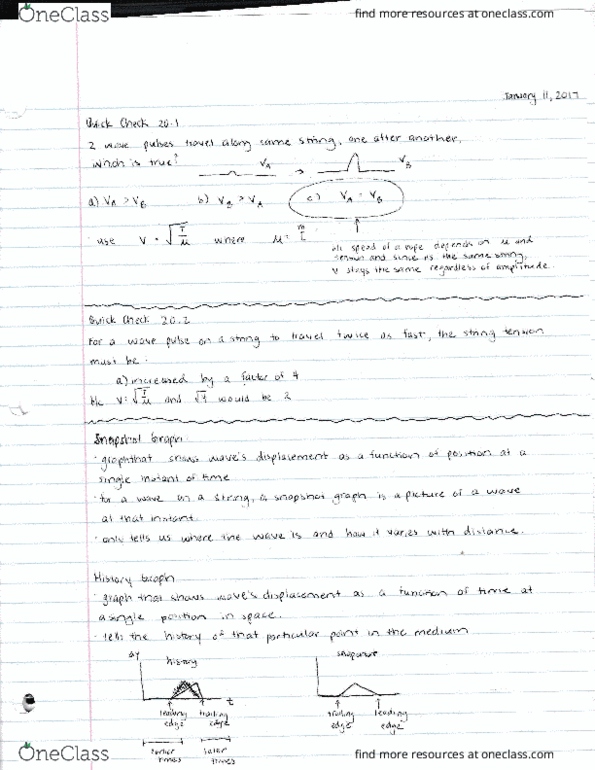 OneClass
find more resources at oneclass.com
January 11, 2017
Quick Check 20.1
2 wave pulses travel along same string, one after another.
Which is true? VA → VB
a) VA > VB b) VB > VA c) VA = VB
use V = √T/μ where μ = m/L
b/c speed of a rope depends on μ and
tension and since its the same string,
V stays the same regardless of amplitude.
Quick Check 20.2
For a wave pulse on a string to travel twice as fast, the string tension
must be:
a) increased by a factor of 4
b/c V = √T/μ and √4 would be 2
Snapshot Graph
· graph that shows wave's displacement as a function of position at a
single instant of time
· for a wave on a string, a snapshot graph is a picture of a wave
at that instant.
· only tells us where the wave is and how it varies with distance.
History Graph
· graph that shows wave's displacement as a function of time at
a single position in space.
· tells the history of that particular point in the medium
Δy history snapshot
t
leading edge trailing edge trailing edge leading edge
earlier times later times
OneClass
find more resources at oneclass.com